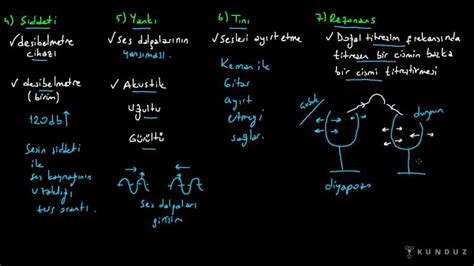 4) Şiddeti
✓ desibelmetre
cihazı
✓ desibelmetre
(birim)
120db↑
Sesin şiddeti
ile
ses kaynağının
uzaklığı
ters orantı.
5) Yankı
✓ Ses dalgalarının
yansıması.
✓ Akustik
Uğultu
Gürültü
ses dalgaları
girişim
6) Tını
✓ Sesleri ayırt etme
Keman ile
Gitar
Ayırt
etmeyi
sağlar.
7) Rezonans
✓ Doğal titreşim frekansında
titreşen bir cismin başka
bir cismi titreştirmesi
durgun
diyapozon
KUNDUZ